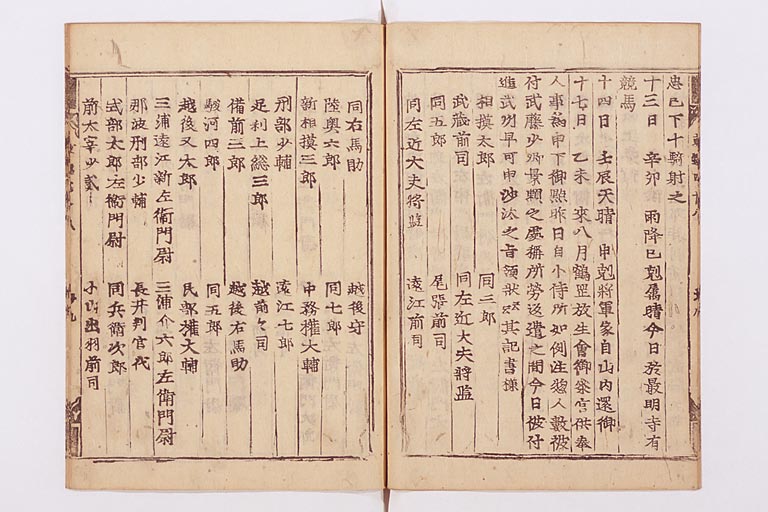 忠已下十騎射之
十三日 辛卯 雨降巳剋属晴今日於最明寺有
競馬
十四日 壬辰天晴 申剋将軍家自山内還御
十七日 乙未 来八月鶴岡放生會御参宮供奉
人事為申下御點昨日自小侍所如例注惣人數被
付武藤少卿景頼之處稱所勞返遣之間今日被付
進武州早可申沙汰之旨領状其記書様
相摸太郎 同三郎
武蔵前司 同左近大夫将監
同五郎 尾張前司
同左近大夫将監 遠江前司
同右馬助 越後守
陸奥六郎 同七郎
新相摸三郎 中務権大輔
刑部少輔 遠江七郎
足利上総三郎 越前々司
備前三郎 越後右馬助
駿河四郎 同五郎
越後又太郎 民部権大輔
三浦遠江新左衛門尉 三浦介六郎左衛門尉
那波刑部少輔 長井判官代
式部太郎左衛門尉 同兵衛次郎
前太宰少貳 小山出羽前司